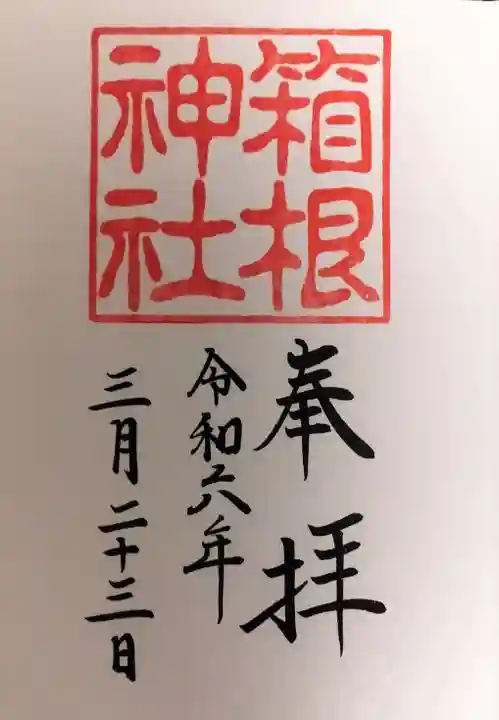 箱根
神社
奉拝
令和六年
三月二十三日